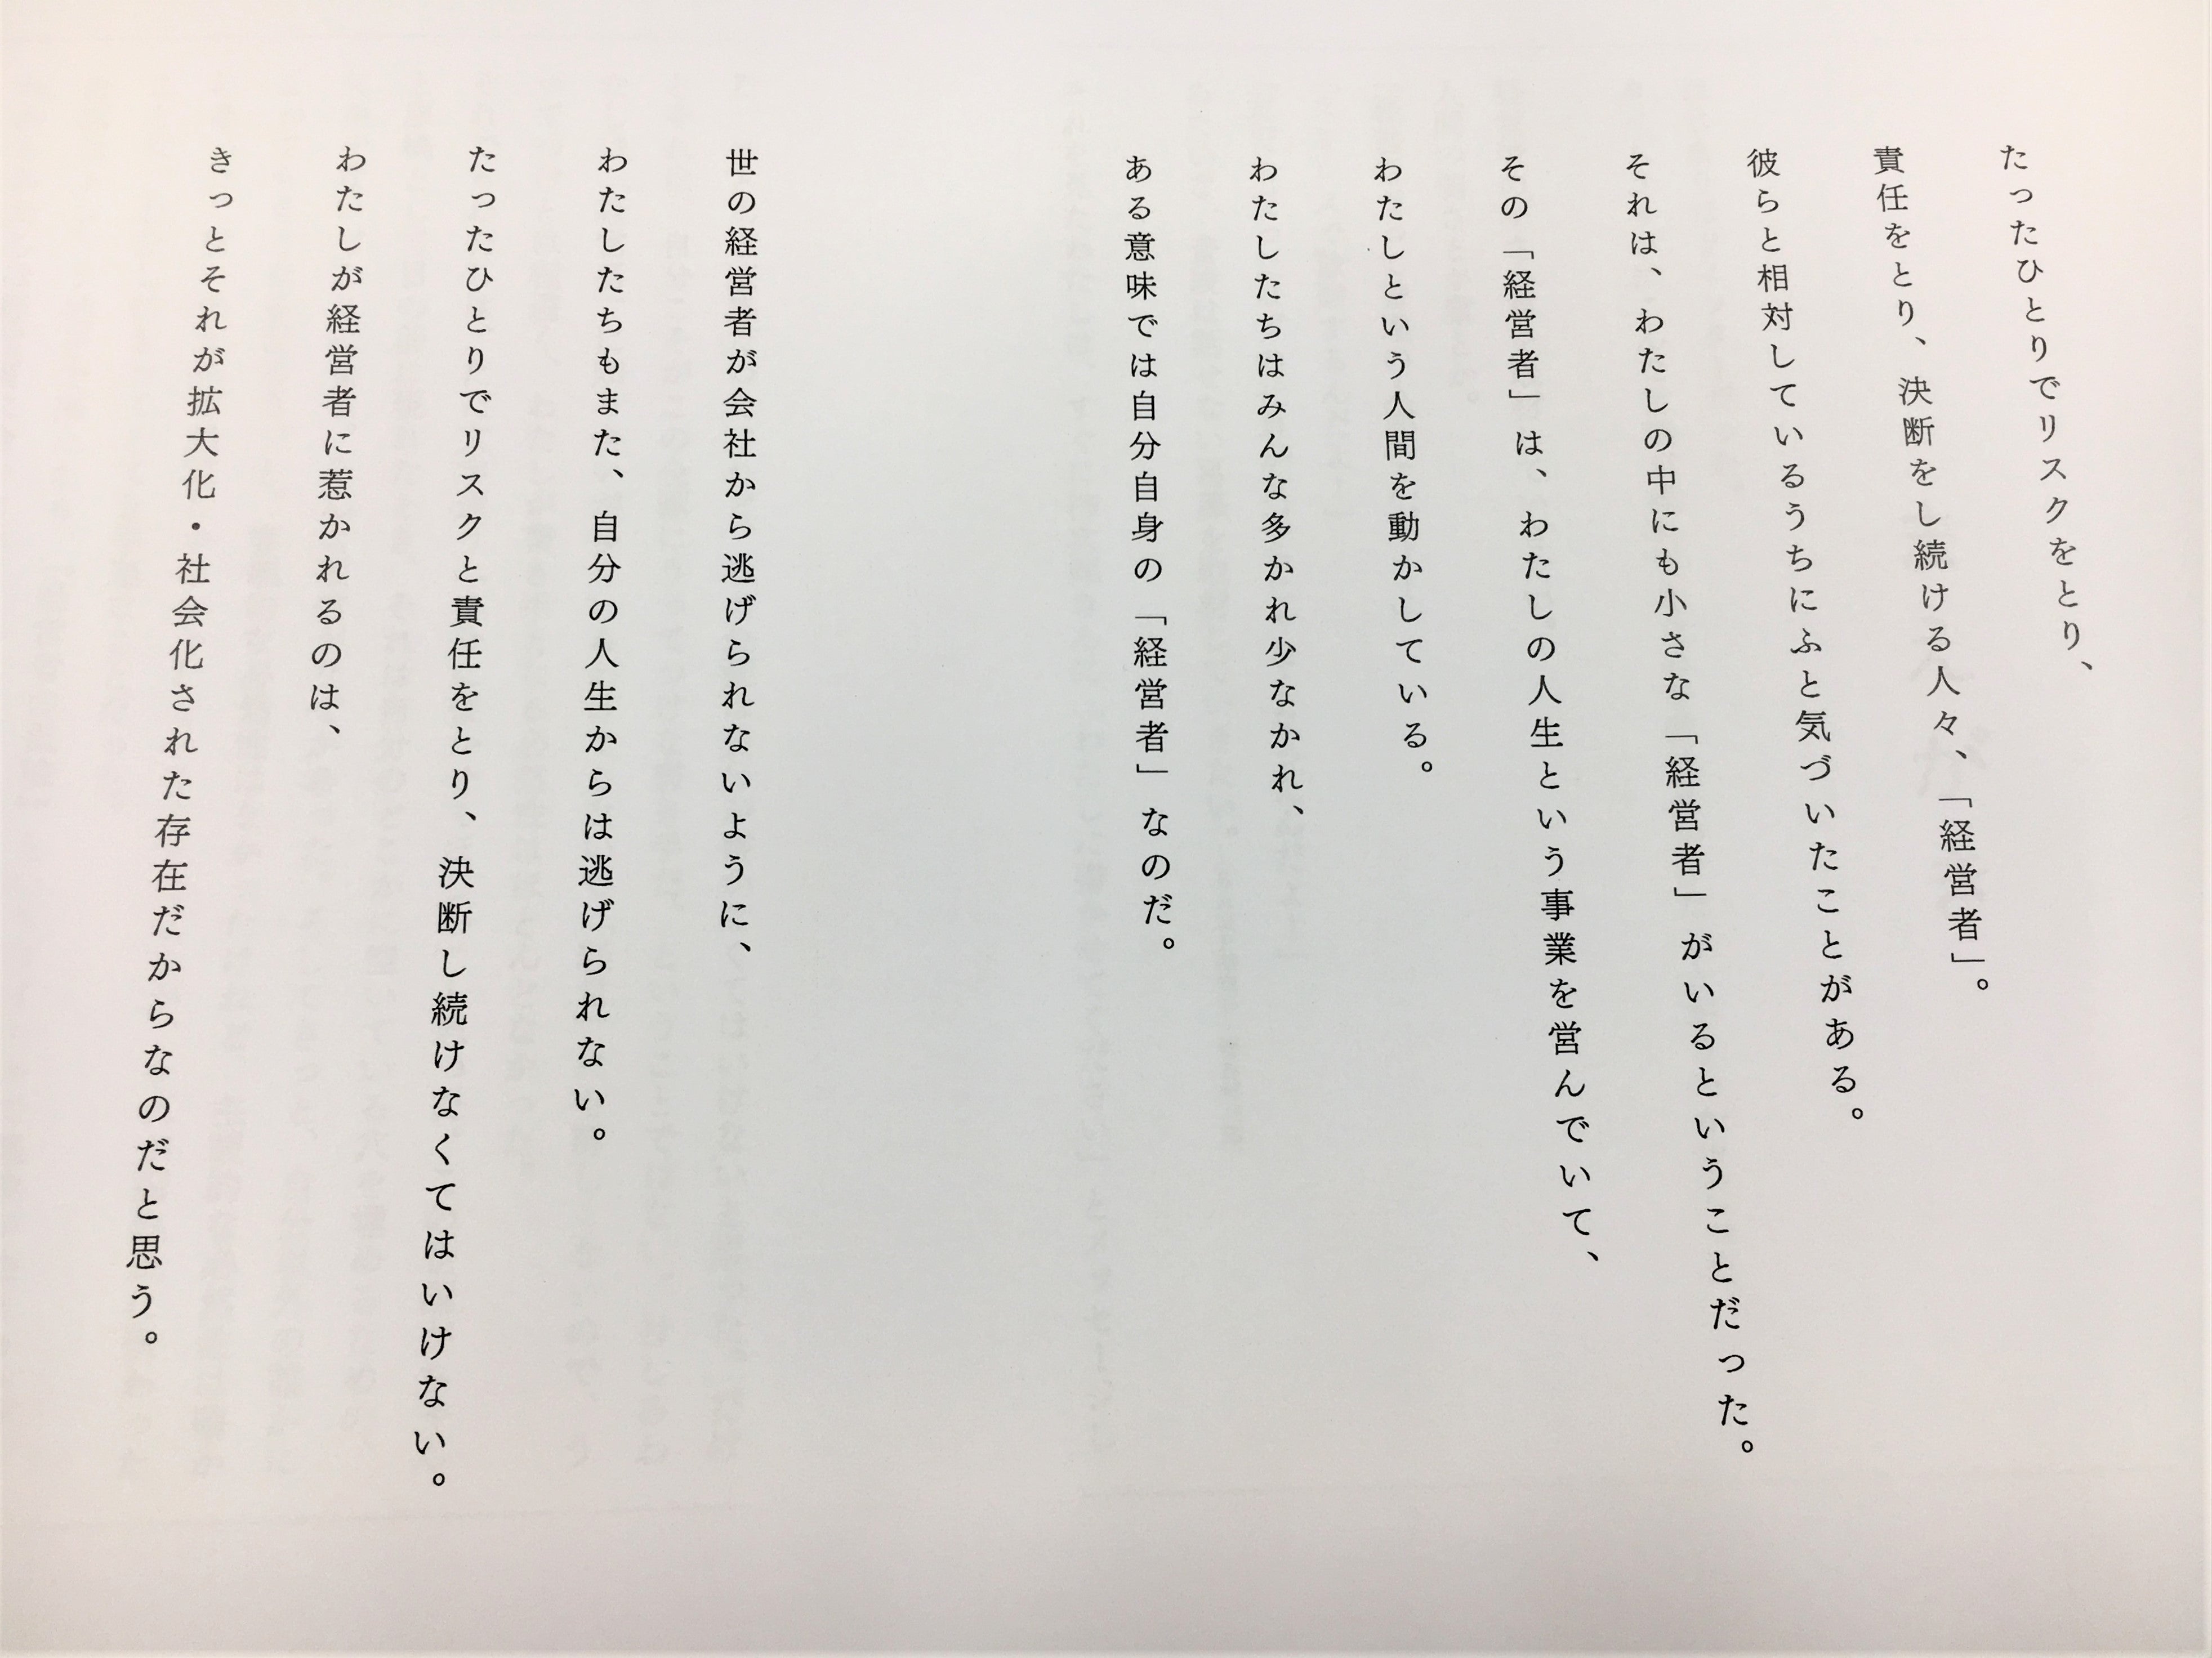 たったひとりでリスクをとり、
責任をとり、決断をし続ける人々、「経営者」。
彼らと相対しているうちにふと気づいたことがある。
それは、わたしの中にも小さな「経営者」がいるということだった。
その「経営者」は、わたしの人生という事業を営んでいて、
わたしという人間を動かしている。
わたしたちはみんな多かれ少なかれ、
ある意味では自分自身の「経営者」なのだ。
世の経営者が会社から逃げられないように、
わたしたちもまた、自分の人生からは逃げられない。
たったひとりでリスクと責任をとり、決断し続けなくてはいけない。
わたしが経営者に惹かれるのは、
きっとそれが拡大化・社会化された存在だからなのだと思う。